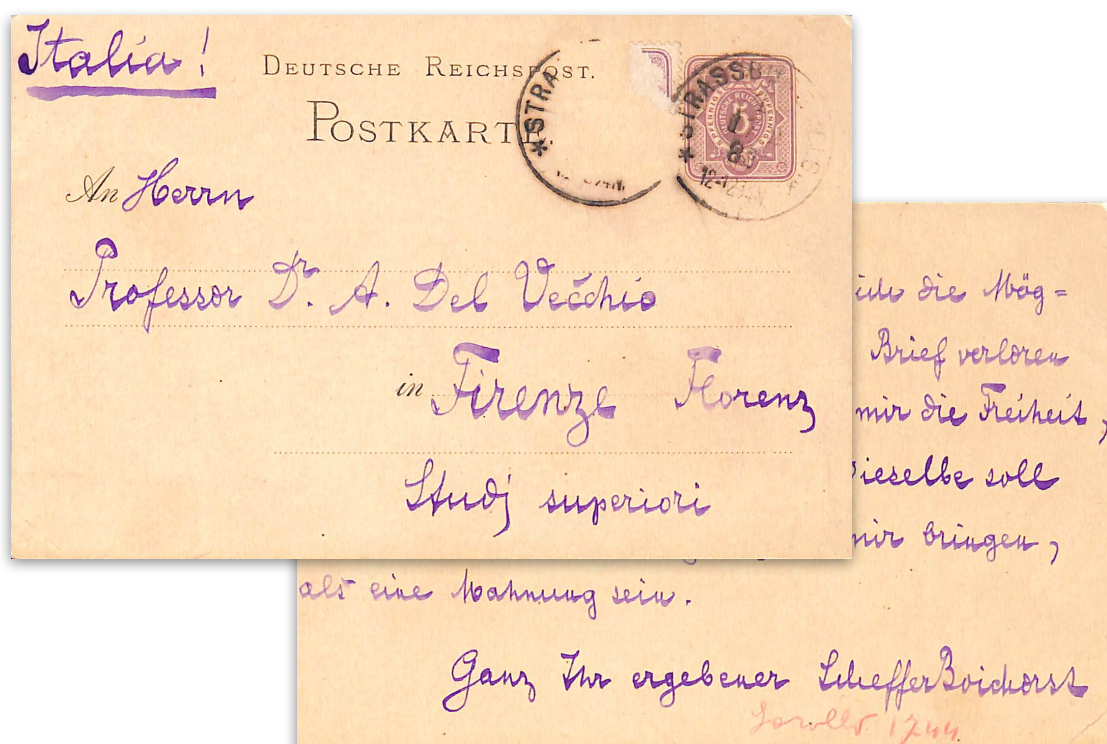 Italia!
DEUTSCHE REICHSPOST.
POSTKARTE
*STRA
*STRASSB
12-12½N
5
An Herrn
Professor Dr. A. Del Vecchio
in Firenze Florenz
Studj superiori
die Mög=
Brief verloren
mir die Freiheit,
Dieselbe soll
mir bringen,
als eine Mahnung sein.
Ganz Ihr ergebener Scheffer Boichorst
1744